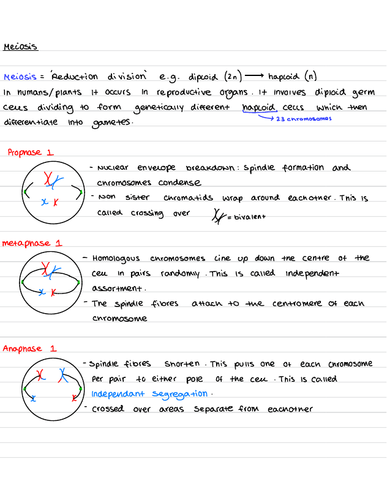 Meiosis
Meiosis = 'Reduction division' e.g. diploid (2n) → haploid (n)
In humans/plants it occurs in reproductive organs. It involves diploid germ
cells dividing to form genetically different haploid cells which then
differentiate into gametes.
→ 23 chromosomes
Prophase 1
- Nuclear envelope breakdown: Spindle formation and
chromosomes condense
- Non sister chromatids wrap around eachother. This is
called crossing over
= bivalent
metaphase 1
- Homologous chromosomes line up down the centre of the
cell in pairs randomly. This is called independent
assortment.
- The spindle fibres attach to the centromere of each
chromosome
Anaphase 1
- Spindle fibres shorten. This pulls one of each chromosome
per pair to either pole of the cell. This is called
independant segregation.
- Crossed over areas separate from eachother